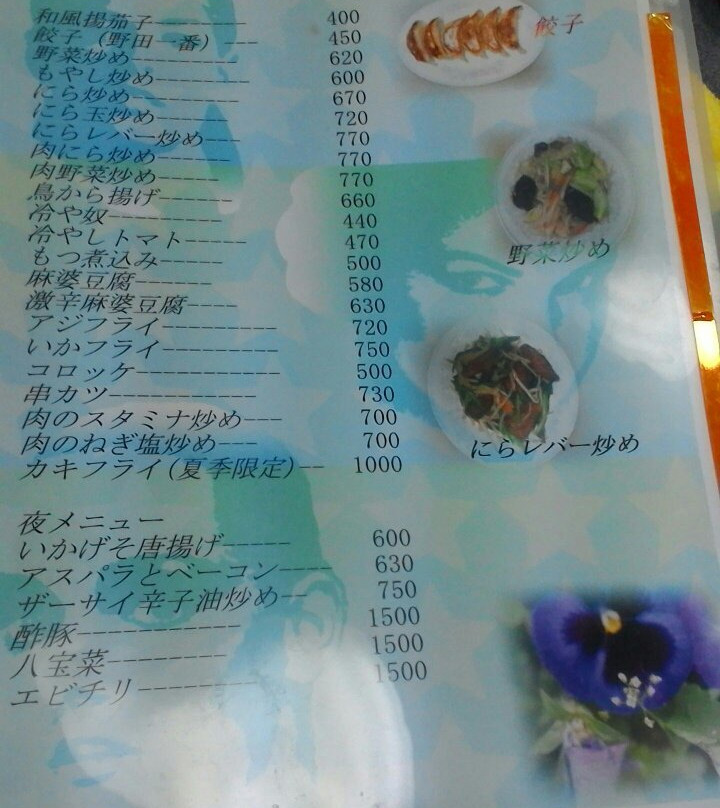 和風揚茄子---------- 400
餃子（野田一番）--- 450
野菜炒め------------ 620
もやし炒め---------- 600
にら炒め------------ 670
にら玉炒め---------- 720
にらレバー炒め------ 770
肉にら炒め---------- 770
肉野菜炒め---------- 770
鳥から揚げ-------- 660
冷や奴------------ 440
冷やしトマト------ 470
もつ煮込み-------- 500
麻婆豆腐---------- 580
激辛麻婆豆腐----- 630
アジフライ---------- 720
いかフライ---------- 750
コロッケ------------ 500
串カツ------------- 730
肉のスタミナ炒め--- 700
肉のねぎ塩炒め--- 700
カキフライ(夏季限定)-- 1000
餃子
野菜炒め
にらレバー炒め
夜メニュー
いかげそ唐揚げ----- 600
アスパラとベーコン---- 630
ザーサイ辛子油炒め-- 750
酢豚------------- 1500
八宝菜---------- 1500
エビチリ--------- 1500